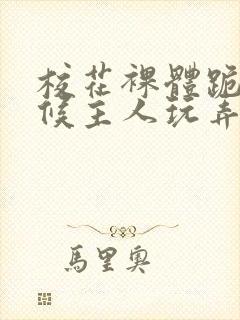 校花裸體跪
候主人玩弄
馬里奧